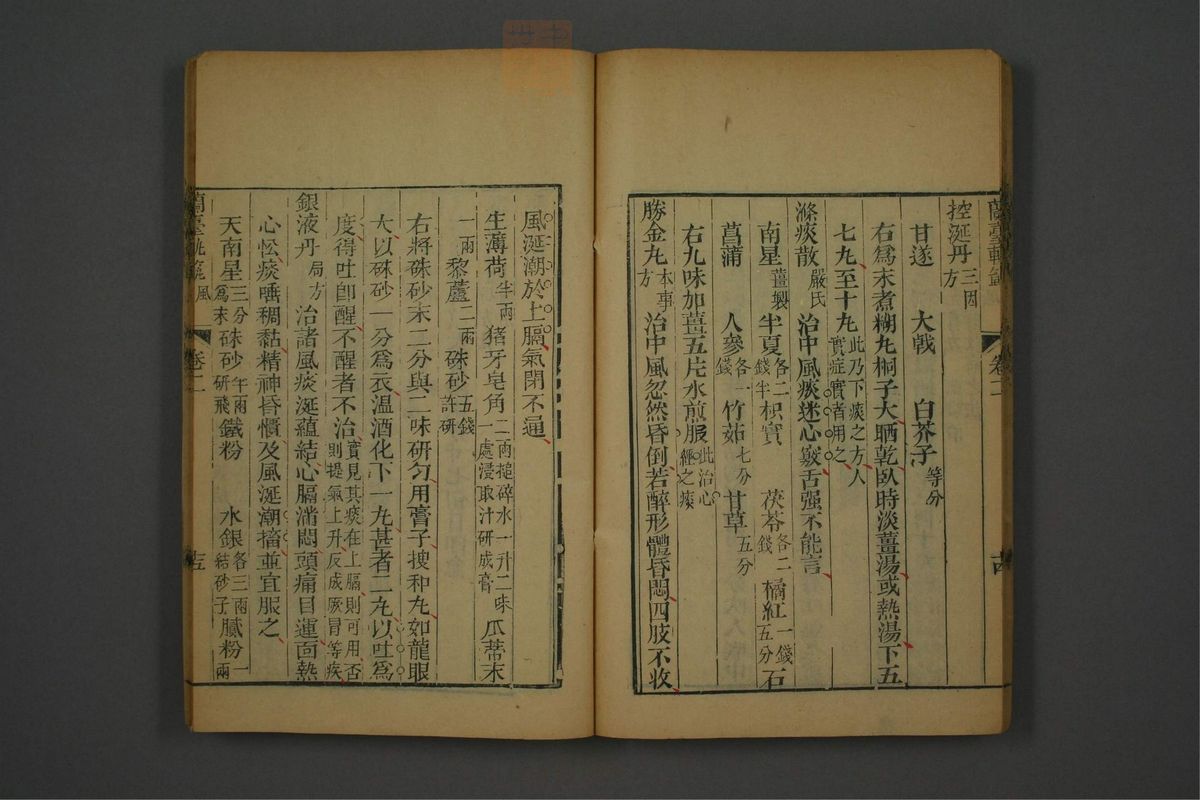 控涎丹三因方
甘遂 大戟 白芥子等分
右爲末煮糊丸桐子大晒乾臥時淡薑湯或熱湯下五
七丸至十丸此乃下痰之方人實症實者用之
滌痰散嚴氏 治中風痰迷心竅舌强不能言
南星薑製 半夏各二錢半 枳實 茯苓各二錢 橘紅一錢五分 石
菖蒲 人參各一錢 竹茹七分 甘草五分
右九味加薑五片水煎服此治心經之痰
勝金丸本事方 治中風忽然昏倒若醉形體昏悶四肢不收
風涎潮於上膈氣閉不通
生薄荷半兩 猪牙皂角二兩搥碎水一升二味一處浸取汁研成膏 瓜蒂末
一兩 藜蘆二兩 硃砂五錢研
右將硃砂末二分與二味研勻用膏子搜和丸如龍眼
大以硃砂一分爲衣溫酒化下一丸甚者二丸以吐爲
度得吐卽醒不醒者不治實見其痰在上膈則可用否則提氣上升反成厥冒等疾
銀液丹局方 治諸風痰涎蘊結心膈滿悶頭痛目運面熱
心忪痰唾稠黏精神昏憒及風涎潮搐並宜服之
天南星三分爲末 硃砂半兩研飛 鐵粉 水銀各三兩結砂子 膩粉一兩
蘭臺軌範 風 卷二